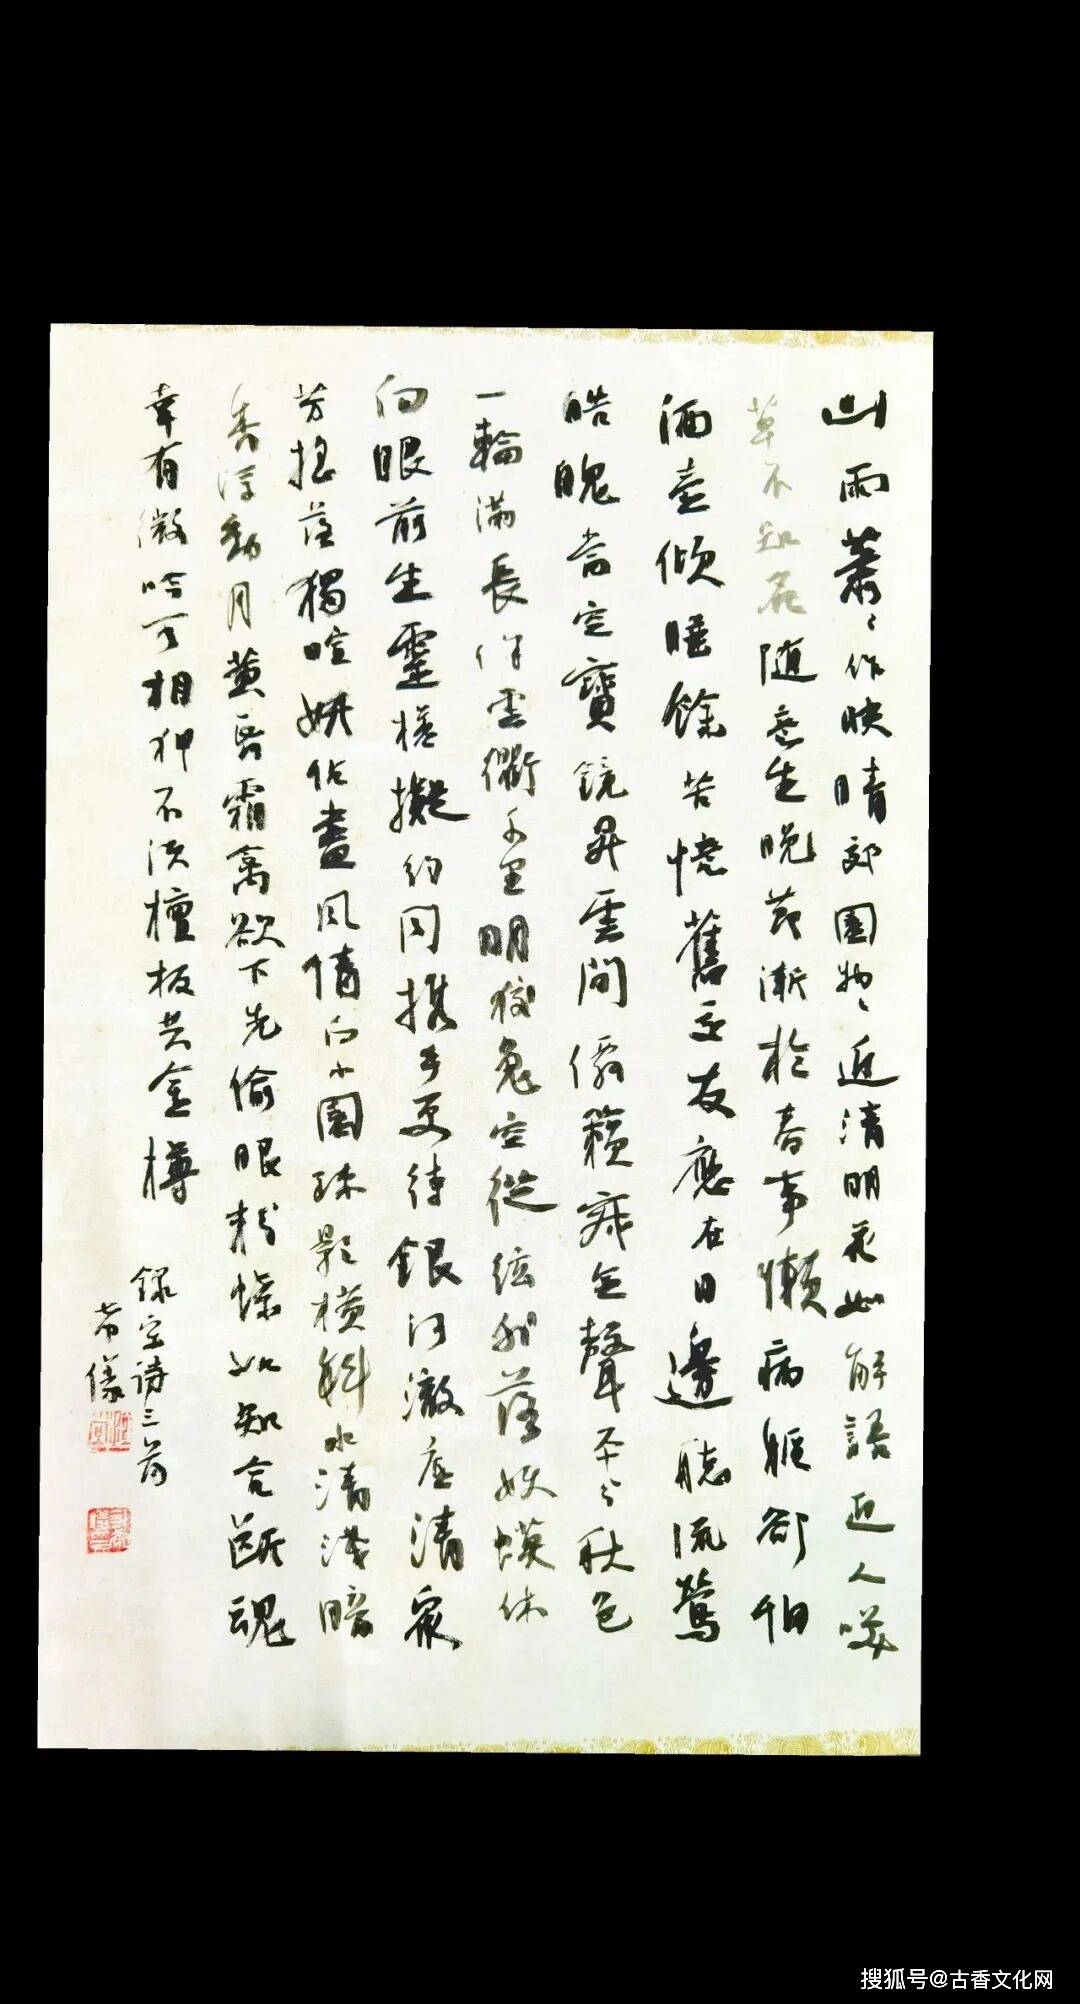 山雨蕭〻作映晴郊園物〻近清明花如解語迎人笑
草不知名随意生晚節漸於春事懶病軀卻怕
酒壺傾睡餘苦憶舊交友應在日邊聽流鶯
皓魄當空寶鏡昇雲間僊籟寂無聲平分秋色
一輪滿長伴雲衢千里明狡兔空從弦外落妖蟆休
向眼前生靈槎擬約同携手更待銀河澈底清衆
芳搖落獨暄妍佔盡風情向小園疎影橫斜水清淺暗
香浮動月黄昏霜禽欲下先偷眼粉蝶如知合斷魂
幸有微吟可相狎不須檀板共金樽
錄宋詩三首
儀
搜狐号@古香文化网